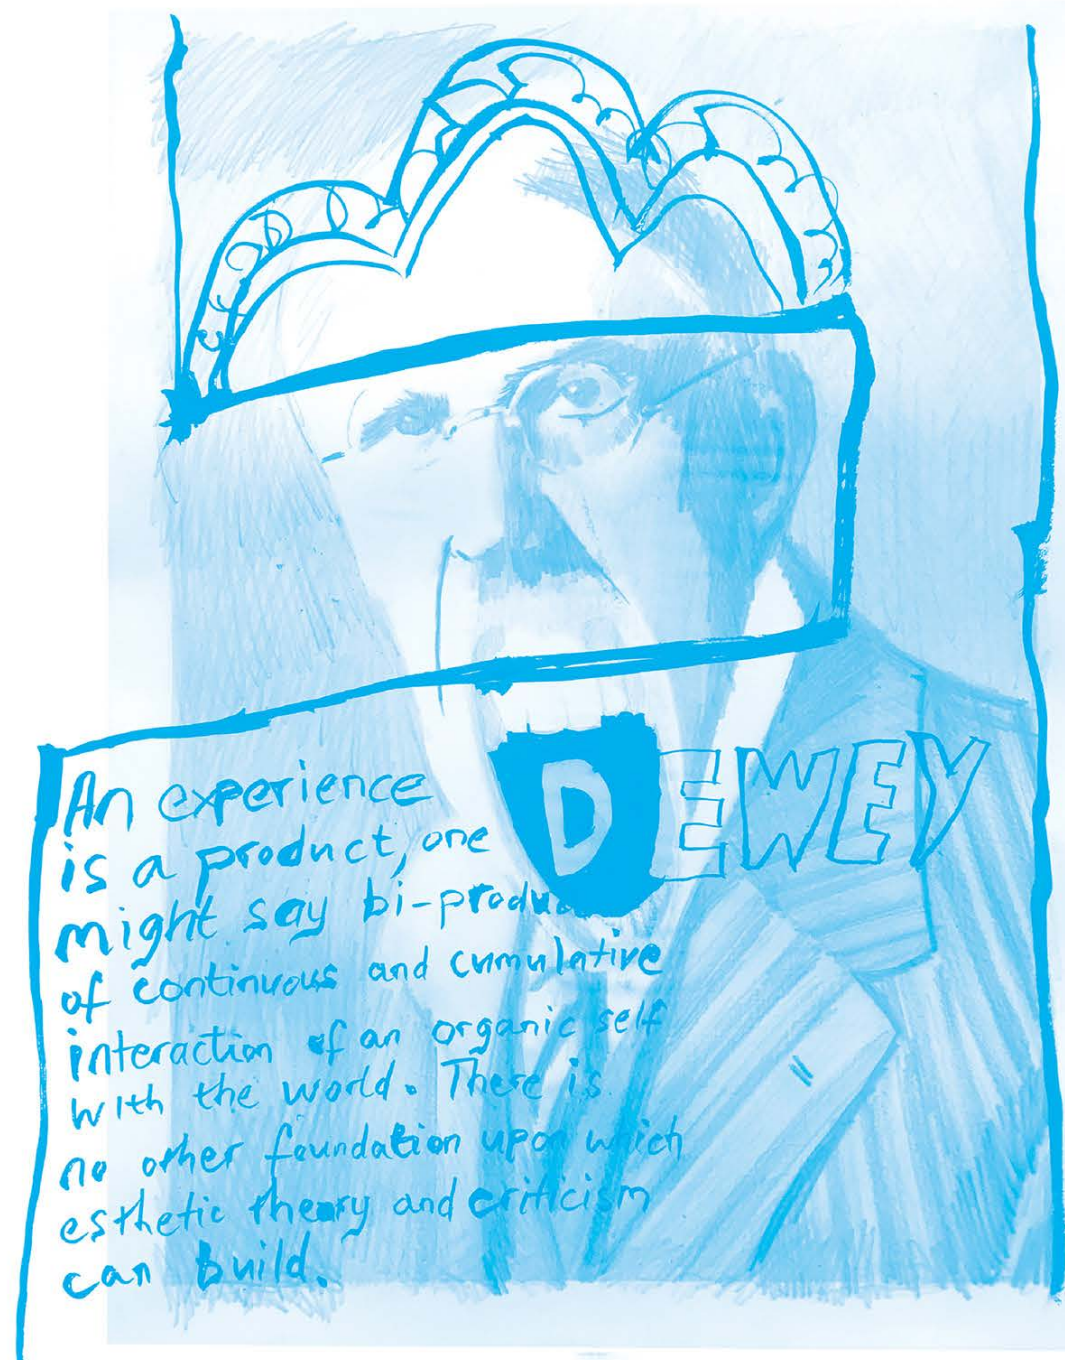 DEWEY
An experience
is a product, one
might say bi-produ
of continuous and cumulative
interaction of an organic self
with the world. There is
no other foundation upon which
esthetic theory and criticism
can build.